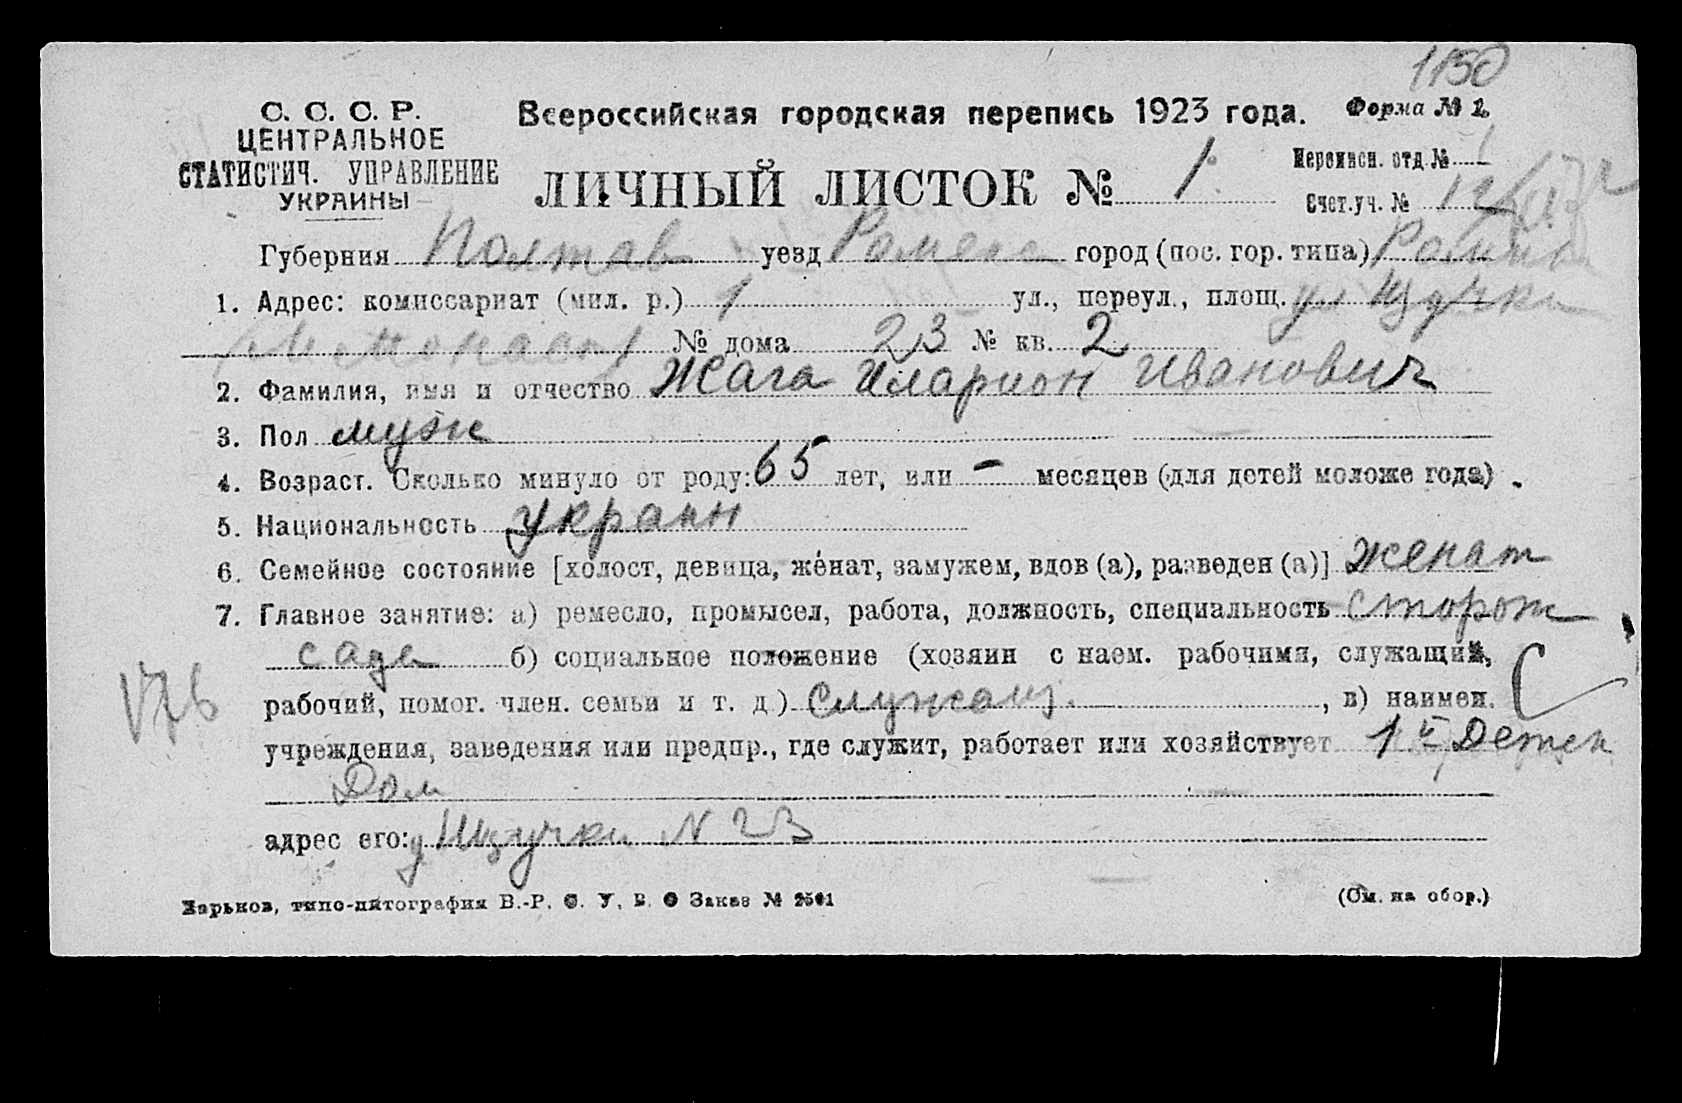 1150
С. С. С. Р.
ЦЕНТРАЛЬНОЕ
СТАТИСТИЧ. УПРАВЛЕНИЕ
УКРАИНЫ
Всероссийская городская перепись 1923 года. Форма № 1.
ЛИЧНЫЙ ЛИСТОК № 1.
Переписн. отд. № 1
Счет. уч. № 12
Губерния Полтав уезд Роменс город (пос. гор. типа) Ромны
1. Адрес: комиссариат (мил. р.) 1 ул., переул., площ. ул Щучки
№ дома 23 № кв. 2
2. Фамилия, имя и отчество Жага Иларион Иванович
3. Пол муж
4. Возраст. Сколько минуло от роду: 65 лет, или – месяцев (для детей моложе года)
5. Национальность украин
6. Семейное состояние [холост, девица, женат, замужем, вдов (а), разведен (а)] женат
7. Главное занятие: а) ремесло, промысел, работа, должность, специальность Сторож
сада б) социальное положение (хозяин с наем. рабочими, служащий,
рабочий, помог. член. семьи и т. д.) Служащ. , в) наимен.
учреждения, заведения или предпр., где служит, работает или хозяйствует 1й Детск
Дом
адрес его: у Щучки N 23
176
С
Харьков, типо-литография В.-Р. С. У. В. О Заказ № 2501
(См. на обор.)